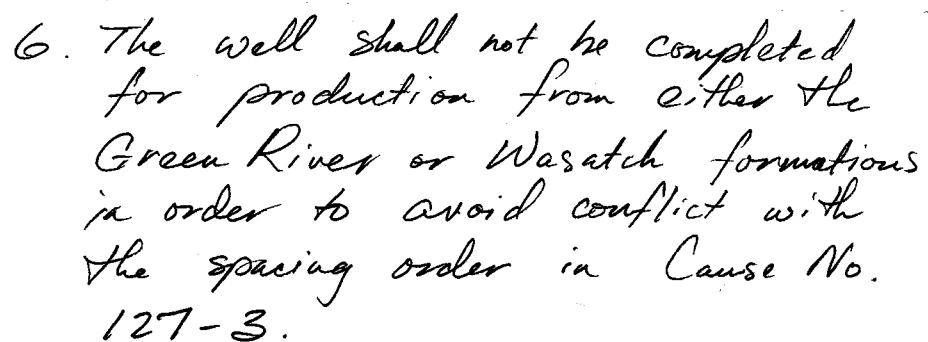 6. The well shall not be completed
for production from either the
Green River or Wasatch formations
in order to avoid conflict with
the spacing order in Cause No.
127-3.